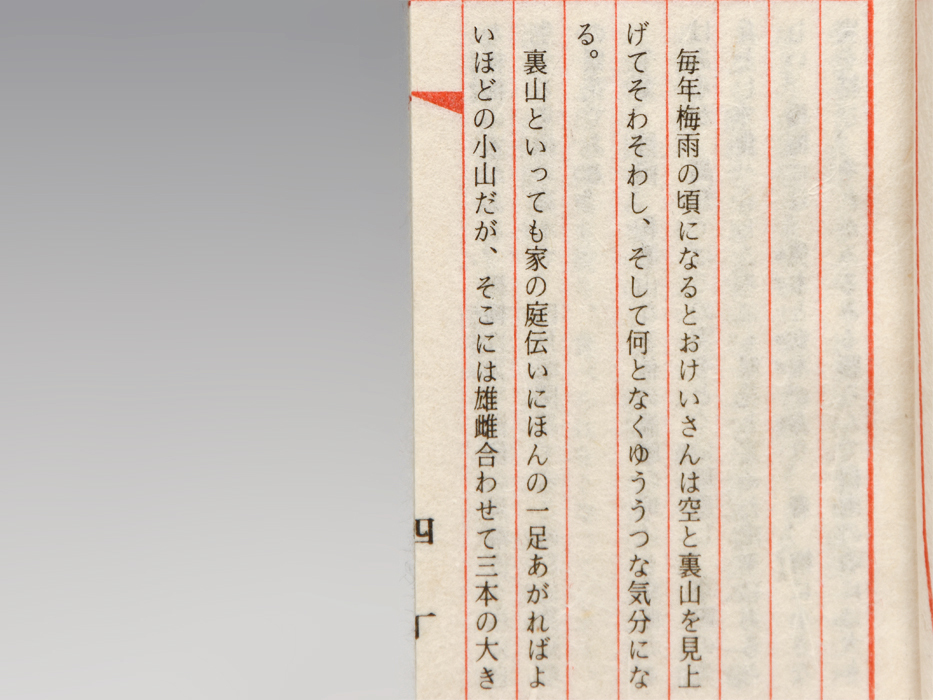 毎年梅雨の頃になるとおけいさんは空と裏山を見上
げてそわそわし、そして何となくゆううつな気分にな
る。
裏山といっても家の庭伝いにほんの一足あがればよ
いほどの小山だが、そこには雄雌合わせて三本の大き
四